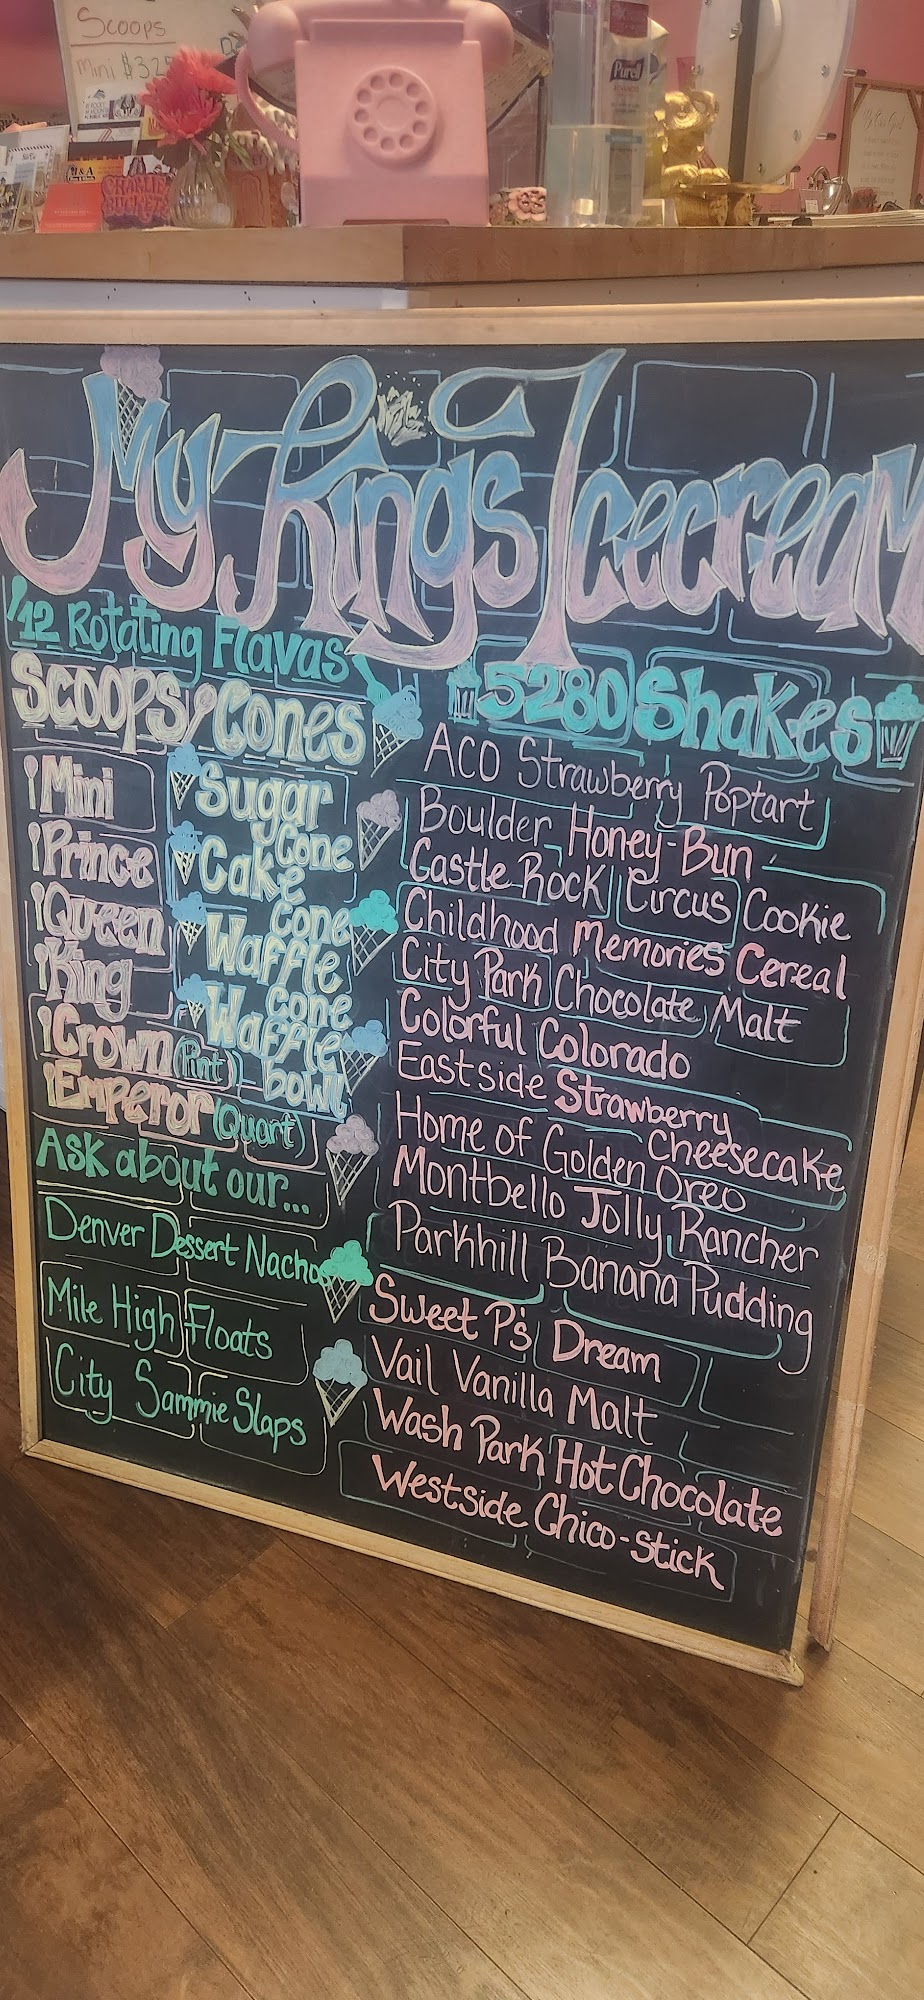 Scoops
Mini $3.25
Purell
CHARLIE BUCKETS
My Kings Icecream
12 Rotating Flavas
Scoops/Cones
Mini
Prince
Queen
King
Crown (Pint)
Emperor (Quart)
Sugar Cone
Cake Cone
Waffle Cone
Waffle bowl
Ask about our...
Denver Dessert Nachos
Mile High Floats
City Sammie Slaps
5280 Shakes
ACO Strawberry Poptart
Boulder Honey-Bun
Castle Rock Circus Cookie
Childhood Memories Cereal
City Park Chocolate Malt
Colorful Colorado
Eastside Strawberry
Cheesecake
Home of Golden Oreo
Montbello Jolly Rancher
Parkhill Banana Pudding
Sweet P's Dream
Vail Vanilla Malt
Wash Park Hot Chocolate
Westside Chico-Stick